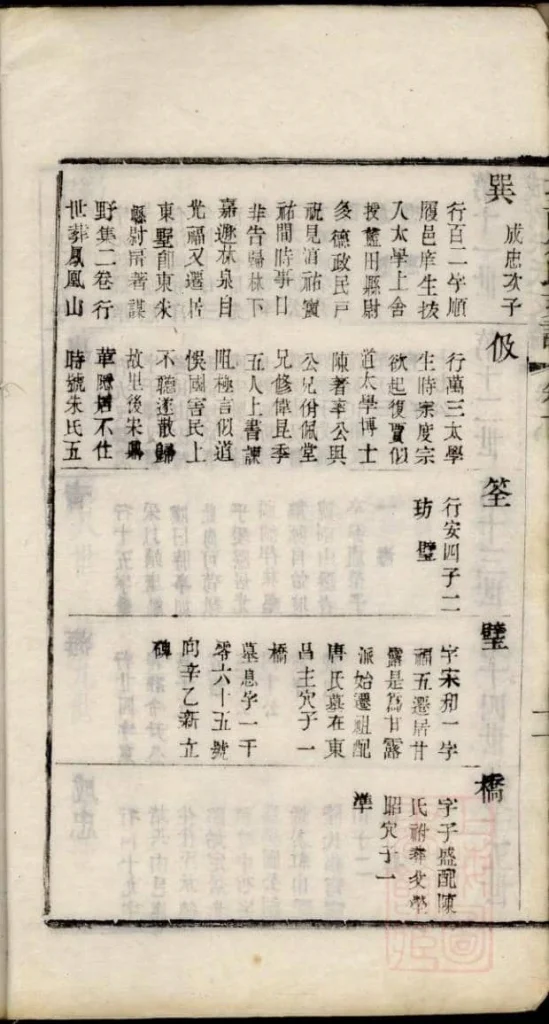 巽
成忠次子
行百二字順
履邑庠生拔
入太學上舍
授藍田縣尉
多德政民戶
祝見
祐間時事日
非告歸林下
嘉遯林泉自
光福又遷居
東墅卽東朱
縣尉居著謀
野集二卷行
世葬鳳凰山
伋
行萬三太學
生時宗度宗
欲起復賈似
道太學博士
陳著率公與
公兄份佩堂
兄脩偉昆季
五人上書諫
阻極言似道
悞國害民上
不聽遂散歸
故里後宋
華隱遯不仕
時號朱氏五
筌
行安四子二
玏 璧
璧
字宋和一字
福五遷居甘
露是爲甘露
派始遷祖配
唐氏墓在東
昌主穴子一
橋
墓息字一千
零六十五號
向辛乙新立
碑
橋
字子盛配陳
氏祔葬父塋
昭穴子一
準